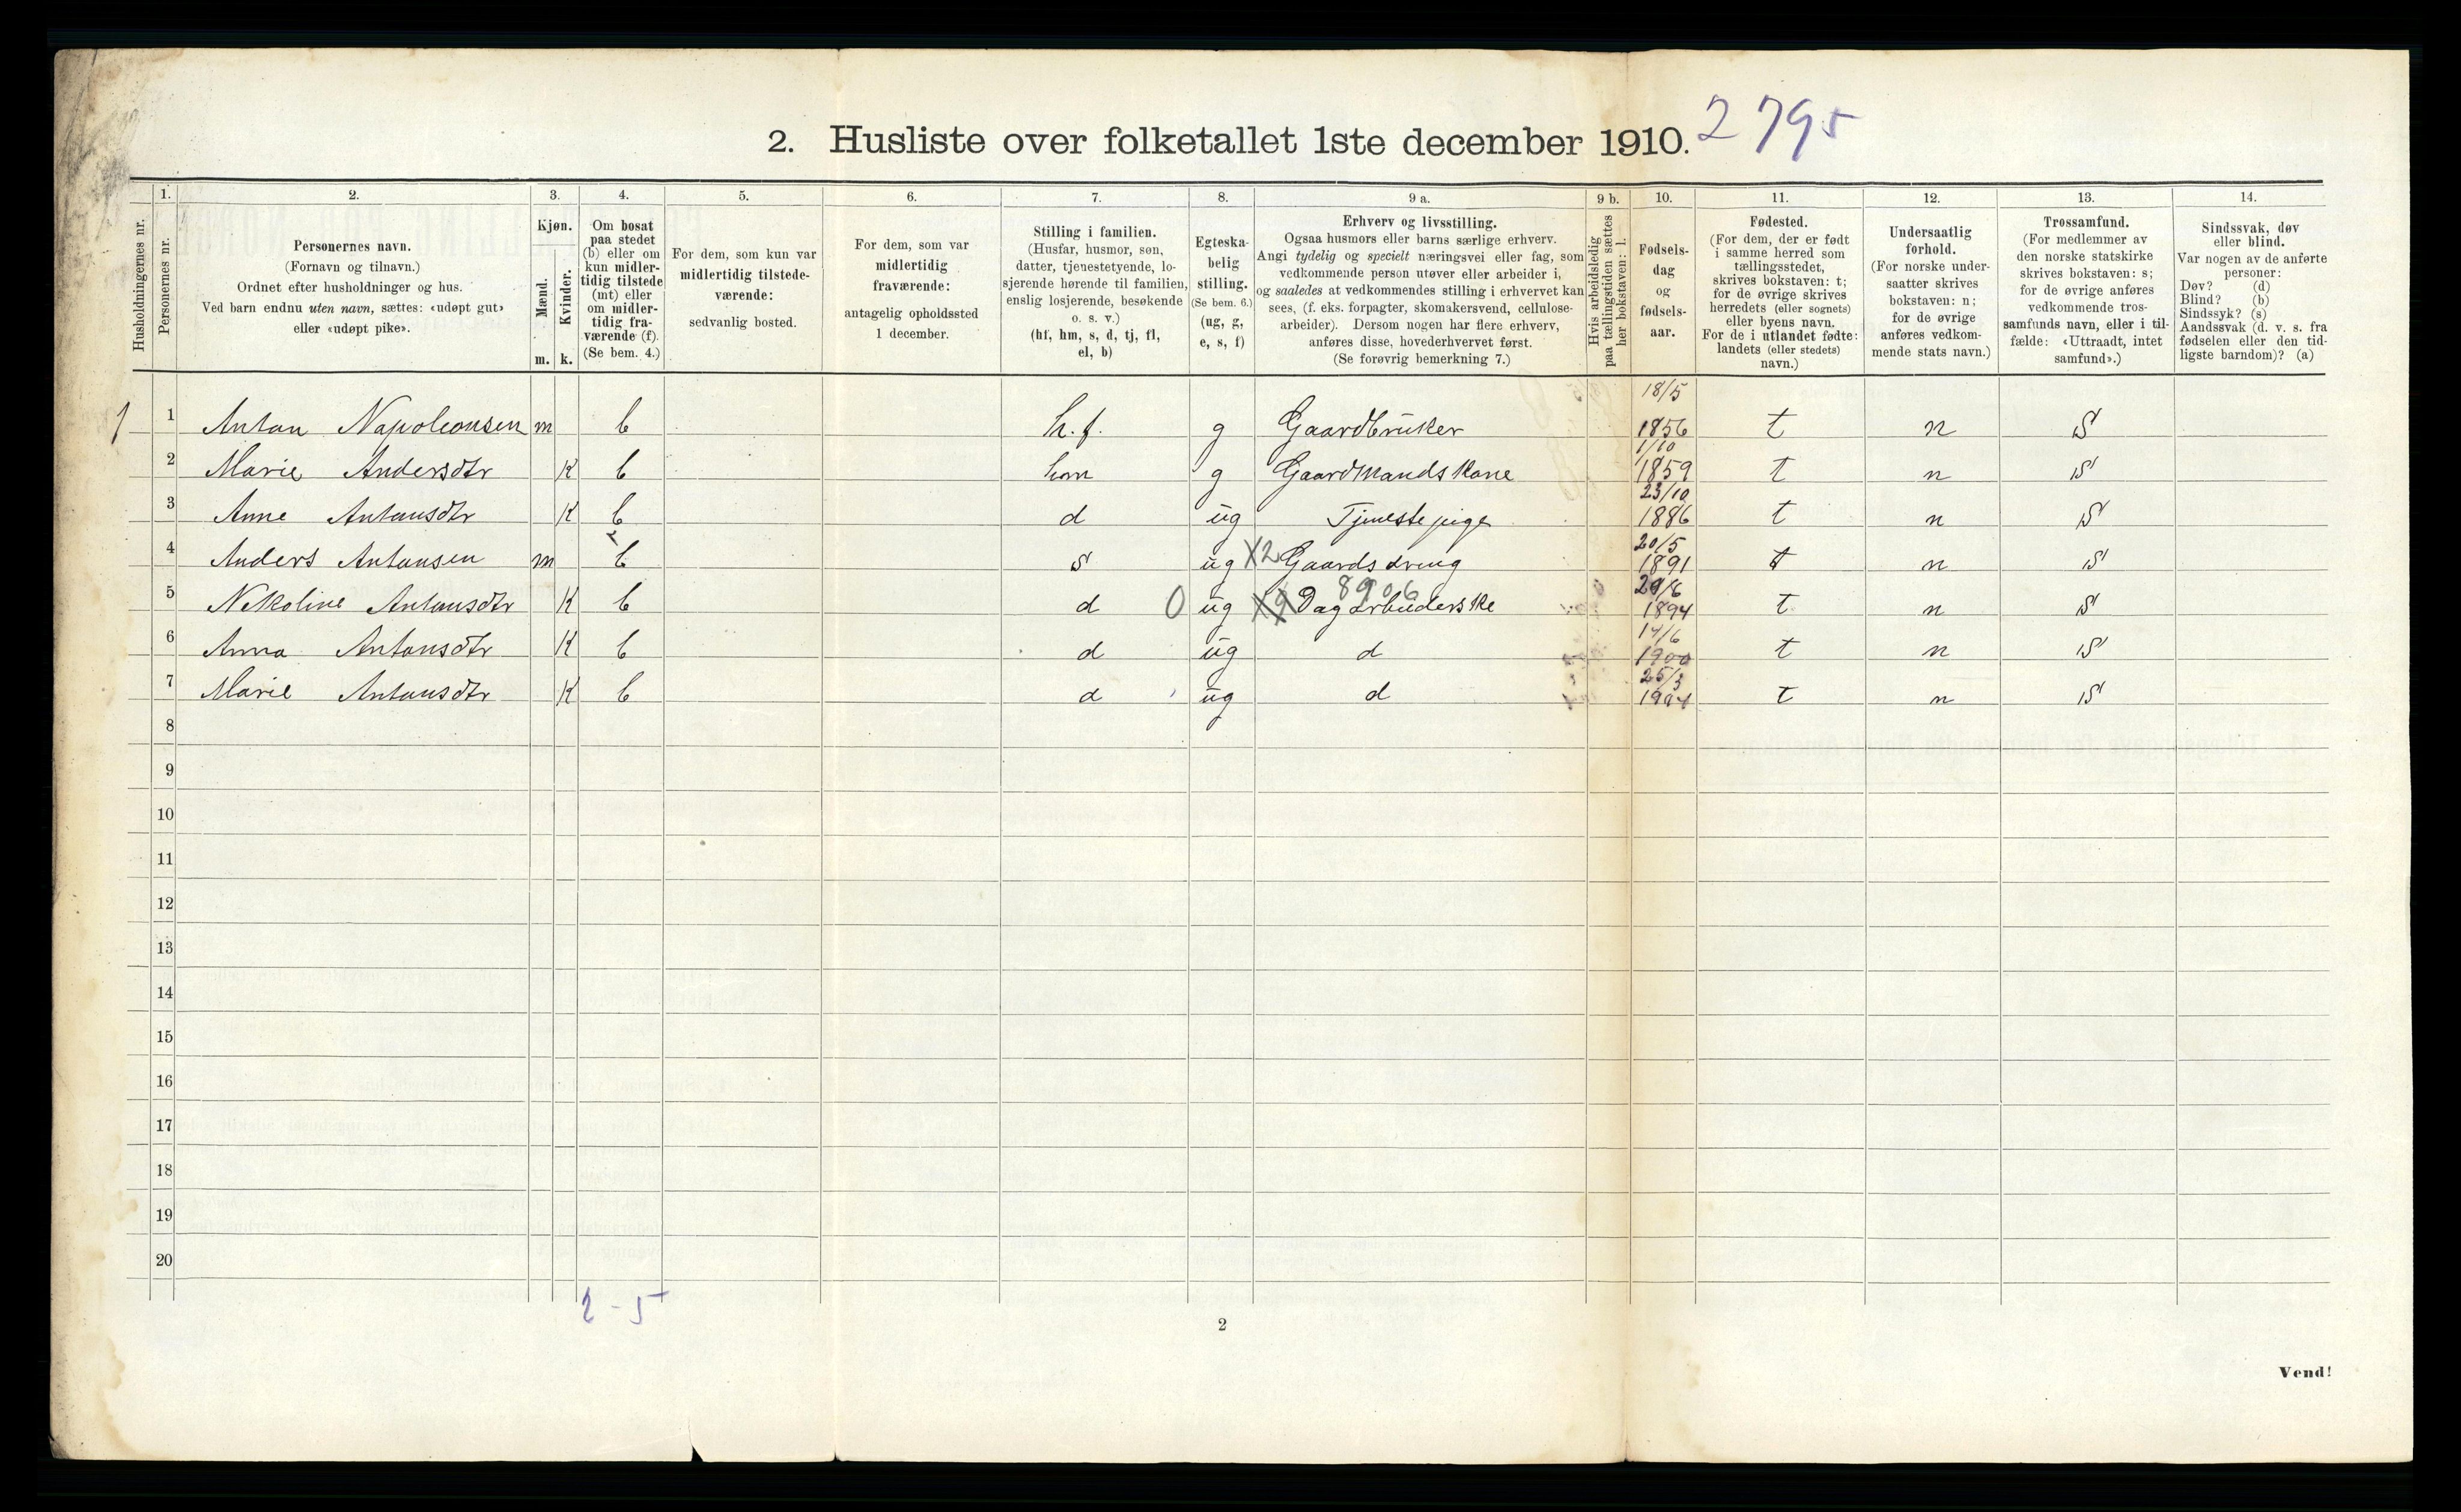 2. Husliste over folketallet 1ste december 1910. 2 795
Husholdningernes nr.
1.
Personernes nr.
2.
Personernes navn.
(Fornavn og tilnavn.)
Ordnet efter husholdninger og hus.
Ved barn endnu uten navn, sættes: «udøpt gut»
eller «udøpt pike».
3.
Kjøn.
Mænd.
Kvinder.
m. k.
4.
Om bosat
paa stedet
(b) eller om
kun midler-
tidig tilstede
(mt) eller
om midler-
tidig fra-
værende (f).
(Se bem. 4.)
5.
For dem, som kun var
midlertidig tilstede-
værende:
sedvanlig bosted.
6.
For dem, som var
midlertidig
fraværende:
antagelig opholdssted
1 december.
7.
Stilling i familien.
(Husfar, husmor, søn,
datter, tjenestetyende, lo-
sjerende hørende til familien,
enslig losjerende, besøkende
o. s. v.)
(hf, hm, s, d, tj, fl,
el, b)
8.
Egteska-
belig
stilling.
(Se bem. 6.)
(ug, g,
e, s, f)
9 a.
Erhverv og livsstilling.
Ogsaa husmors eller barns særlige erhverv.
Angi tydelig og specielt næringsvei eller fag, som
vedkommende person utøver eller arbeider i,
og saaledes at vedkommendes stilling i erhvervet kan
sees, (f. eks. forpagter, skomakersvend, cellulose-
arbeider). Dersom nogen har flere erhverv,
anføres disse, hovederhvervet først.
(Se forøvrig bemerkning 7.)
9 b.
Hvis arbeidsledig
paa tællingstiden sættes
her bokstaven: l.
10.
Fødsels-
dag
og
fødsels-
aar.
11.
Fødested.
(For dem, der er født
i samme herred som
tællingsstedet,
skrives bokstaven: t;
for de øvrige skrives
herredets (eller sognets)
eller byens navn.
For de i utlandet fødte:
landets (eller stedets)
navn.)
12.
Undersaatlig
forhold.
(For norske under-
saatter skrives
bokstaven: n;
for de øvrige
anføres vedkom-
mende stats navn.)
13.
Trossamfund.
(For medlemmer av
den norske statskirke
skrives bokstaven: s;
for de øvrige anføres
vedkommende tros-
samfunds navn, eller i til-
fælde: «Uttraadt, intet
samfund».)
14.
Sindssvak, døv
eller blind.
Var nogen av de anførte
personer:
Døv? (d)
Blind? (b)
Sindssyk? (s)
Aandssvak (d. v. s. fra
fødselen eller den tid-
ligste barndom)? (a)
1 1 Anton Napoleonsen m b h.f. g Gaardbruker 18/5 1856 t n S
2 Marie Andersdtr K b hm g Gaardmandskone 1/10 1859 t n S
3 Anne Antonsdtr K b d ug Tjenestepige 23/10 1886 t n S
4 Anders Antonsen m b s ug X2 Gaardsdreng 20/5 1891 t n S
8906
5 Nekoline Antonsdtr K b d 0 ug Dagarbuderske 1894 t n S
6 Anna Antonsdtr K b d ug d 14/6 1900 t n S
7 Marie Antonsdtr K b d ug d 25/3 1904 t n S
8
9
10
11
12
13
14
15
16
17
18
19
20
2 - 5
2
Vend!